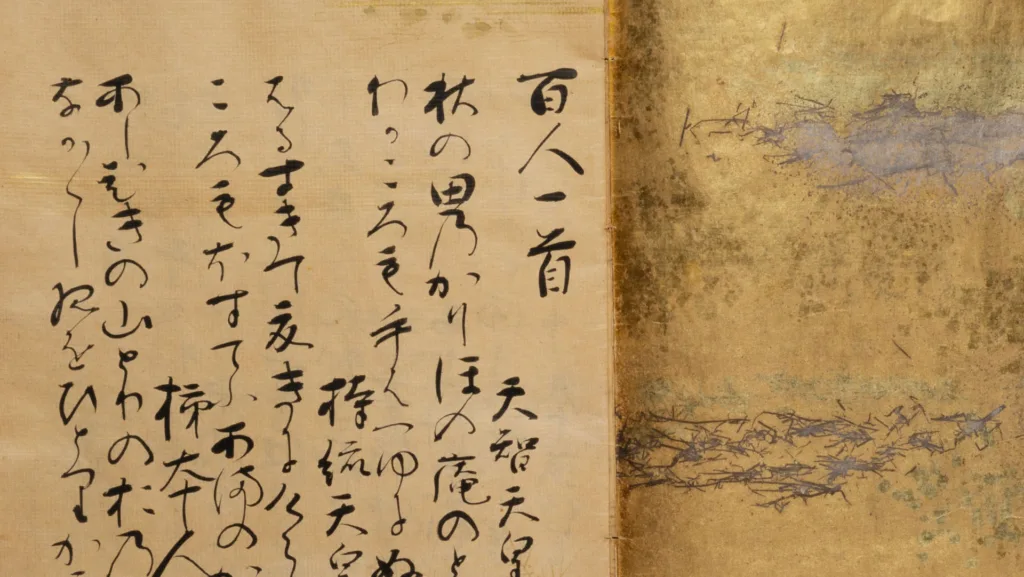 百人一首
天智天皇
秋の田のかりほの庵のと
わかころも手はつゆにぬ
持統天皇
はるすきて夏きにけら
ころもほすてふあまのか
柿本人
あしひきの山とりのおの
なか〳〵し夜をひとりか